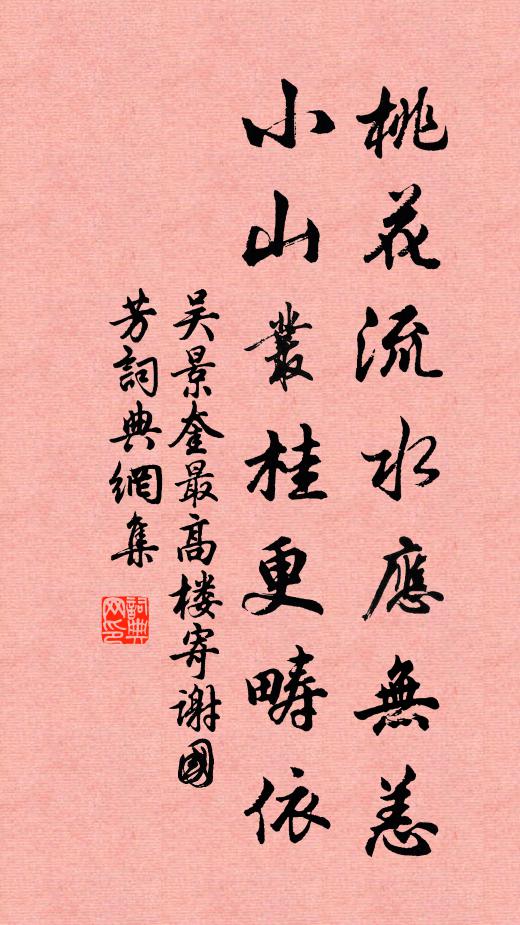 桃花流水應無恙
小山叢桂更疇依
吴景奎最高楼寄謝國
芳詞典網集
詞典網印